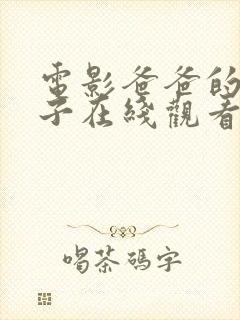 電影爸爸的
子在綫觀看
喝茶碼字